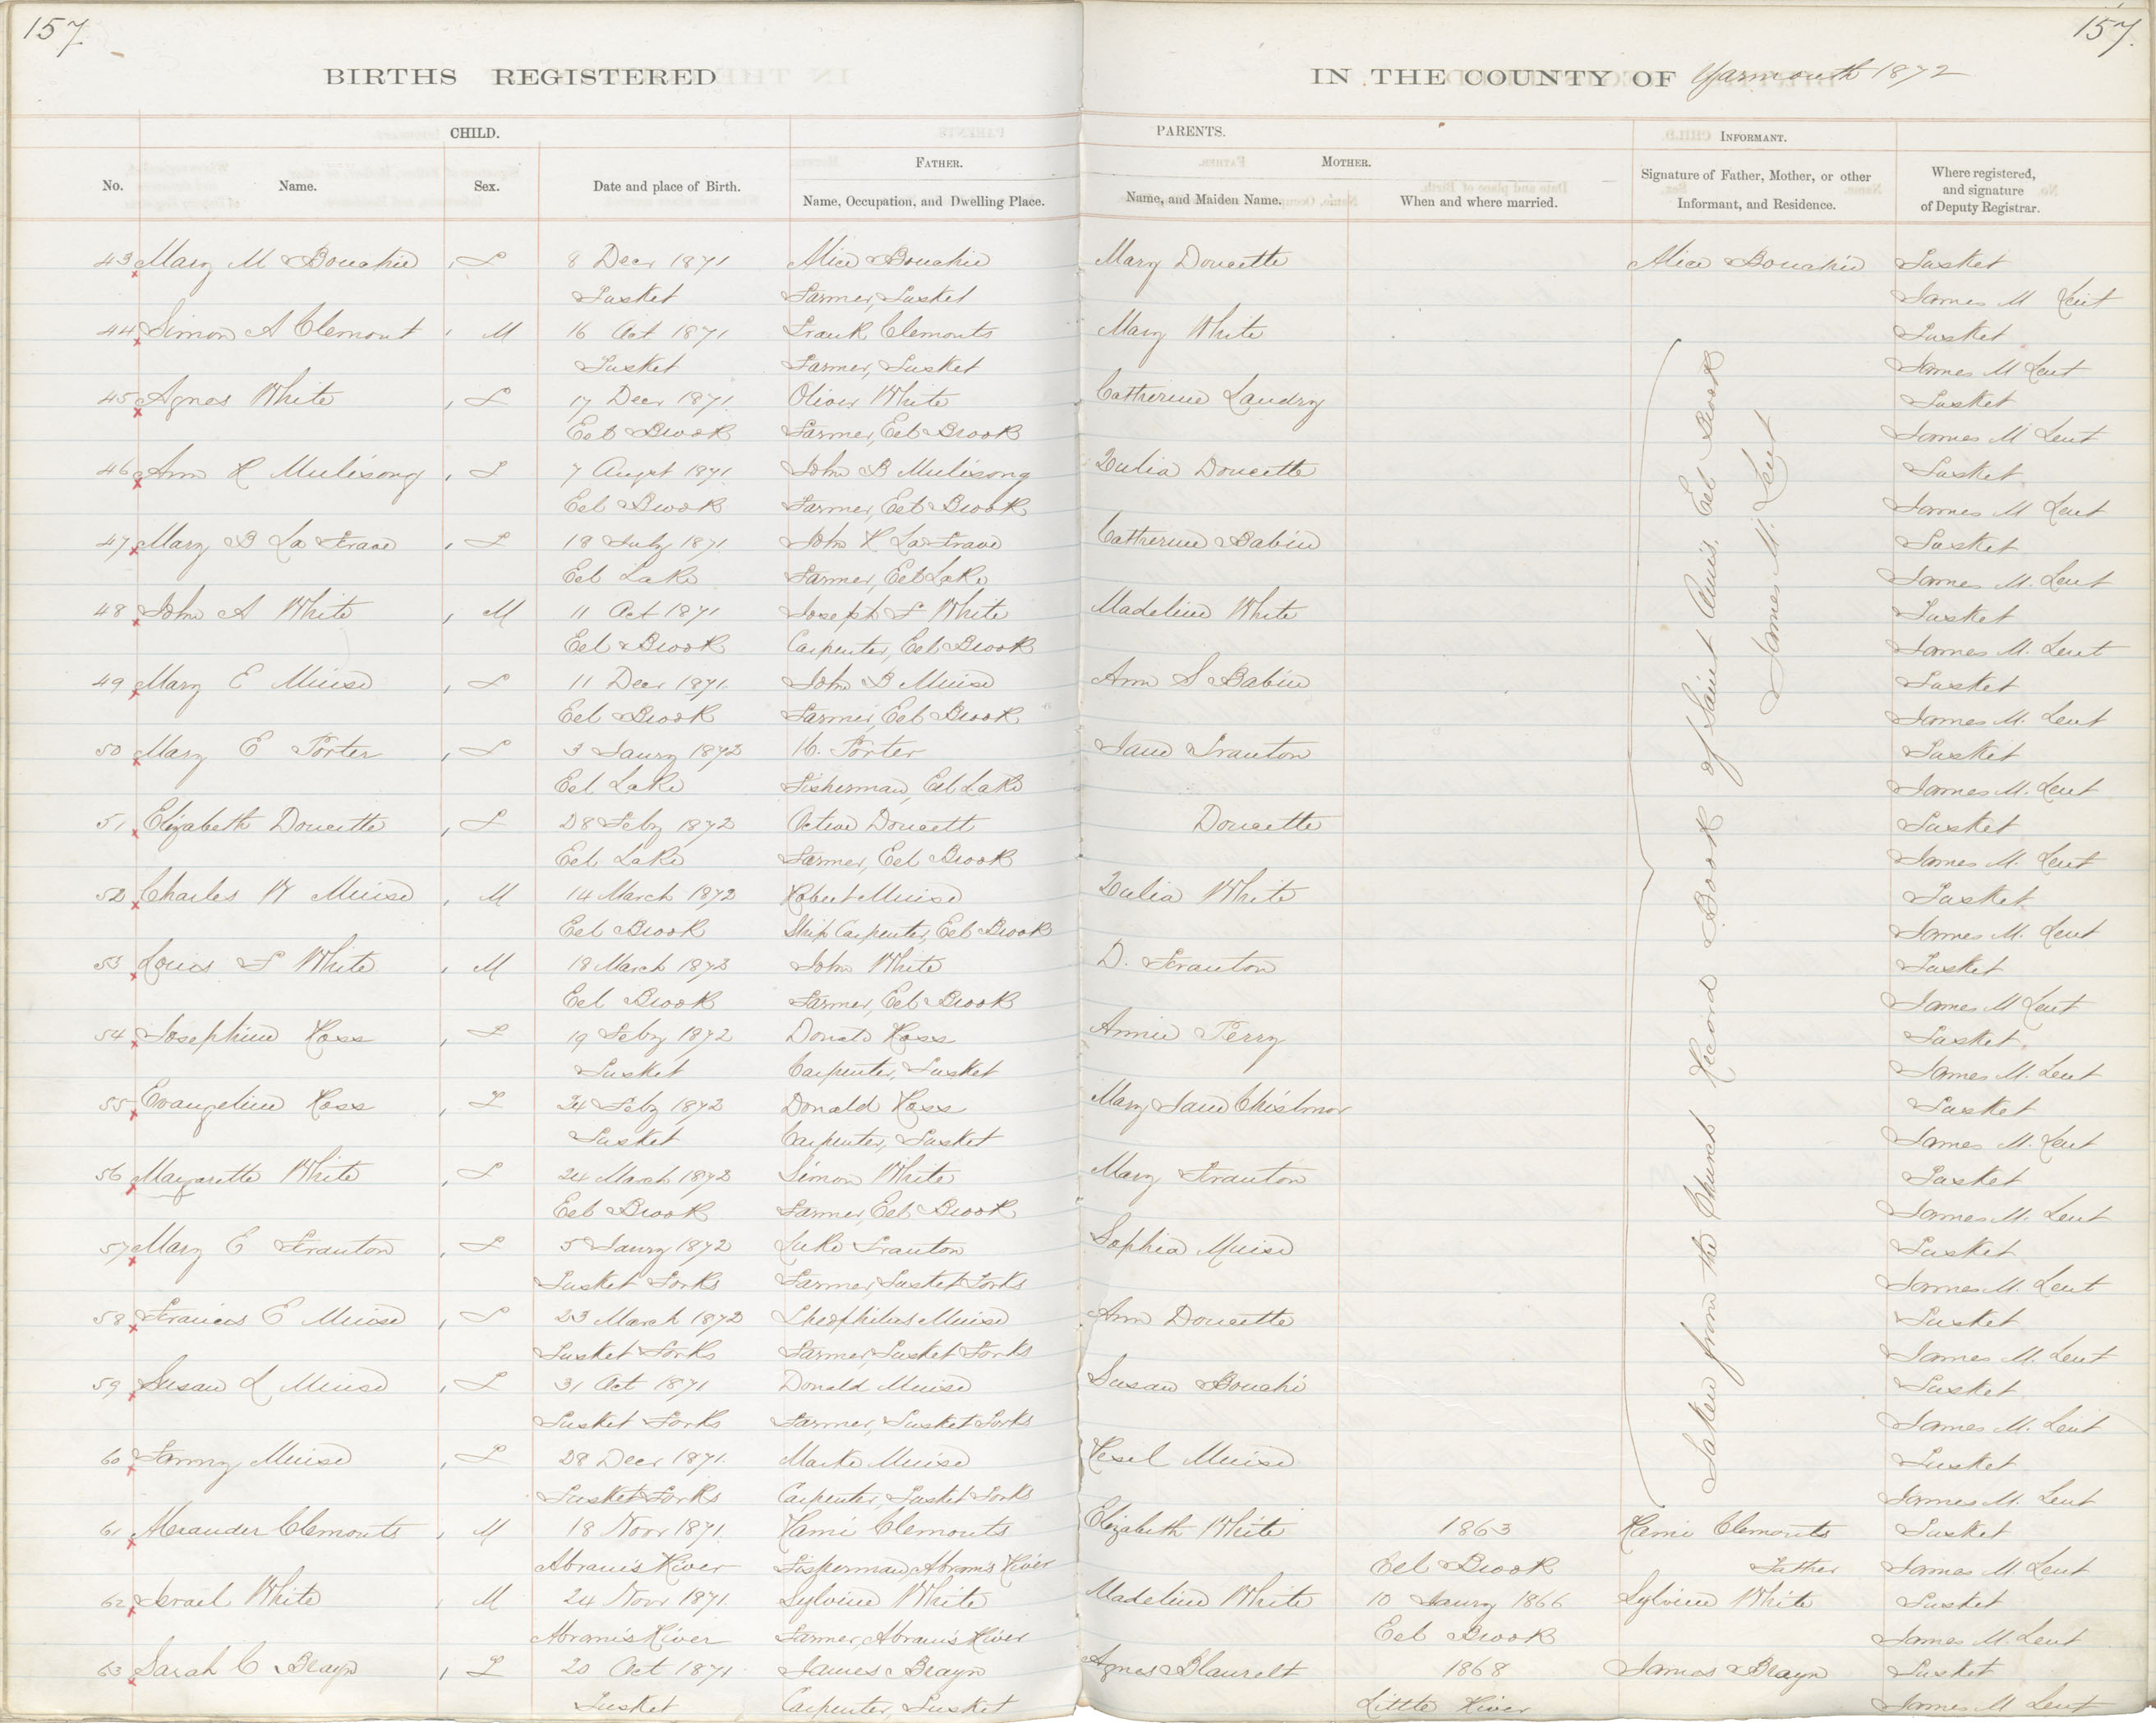 157
157.
BIRTHS REGISTERED IN THE COUNTY OF Yarmouth 1872
CHILD. PARENTS. INFORMANT.
FATHER. MOTHER.
No. Name. Sex. Date and place of Birth. Name, Occupation, and Dwelling Place. Name, and Maiden Name. When and where married. Signature of Father, Mother, or other Informant, and Residence. Where registered, and signature of Deputy Registrar.
43 Mary M Bouchie F 8 Decr 1871 Alice Bouchie Mary Doucette Alice Bouchie Tusket
Tusket Farmer, Tusket James M Lent
44 Simon A Clemont M 16 Oct 1871 Frank Clemonts Mary White Tusket
Tusket Farmer, Tusket James M Lent
45 Agnes White F 17 Decr 1871 Oliver White Catherine Landry Tusket
Eel Brook Farmer, Eel Brook James M Lent
46 Ann R Mulisong F 7 Augst 1871 John B Mulisong Julia Doucette Tusket
Eel Brook Farmer, Eel Brook James M Lent
47 Mary B La Frave F 18 July 1871 John R La Frave Catherine Babin Tusket
Eel Lake Farmer, Eel Lake James M. Lent
48 John A White M 11 Oct 1871 Joseph F White Madeline White Tusket
Eel Brook Carpenter, Eel Brook James M. Lent
49 Mary E Muise F 11 Decr 1871 John B Muise Ann S Babin Tusket
Eel Brook Farmer, Eel Brook James M. Lent
50 Mary E Porter F 3 Janry 1872 H. Porter Jane Frauton Tusket
Eel Lake Fisherman, Eel Lake James M. Lent
51 Elizabeth Doucette F 28 Feby 1872 Doucett Doucette Tusket
Eel Lake Farmer, Eel Brook James M. Lent
52 Charles W Muise M 14 March 1872 Robert Muise Julia White Tusket
Eel Brook Ship Carpenter, Eel Brook James M. Lent
53 Louis F White M 18 March 1872 John White D. Frauton Tusket
Eel Brook Farmer, Eel Brook James M Lent
54 Josephine Ross F 19 Feby 1872 Donald Ross Annie Perry Tusket
Tusket Carpenter, Tusket James M. Lent
55 Evangeline Ross F 24 Feby 1872 Donald Ross Mary Jane Tusket
Tusket Carpenter, Tusket James M. Lent
56 Margarette White F 24 March 1872 Simon White Mary Frauton Tusket
Eel Brook Farmer, Eel Brook James M. Lent
57 Mary E Frauton F 5 Janry 1872 Luke Frauton Sophia Muise Tusket
Tusket Forks Farmer, Tusket Forks James M. Lent
58 Frances E Muise F 23 March 1872 Theophilus Muise Ann Doucette Tusket
Tusket Forks Farmer, Tusket Forks James M. Lent
59 Susan L Muise F 31 Oct 1871 Donald Muise Susan Bouchi Tusket
Tusket Forks Farmer, Tusket Forks James M. Lent
60 Fanny Muise F 28 Decr 1871 Marke Muise Muise Tusket
Tusket Forks Carpenter, Tusket Forks James M. Lent
Taken from the Church Record Book of Saint Anns, Eel Brook
James M. Lent
61 Alexander Clemonts M 18 Novr 1871 Remi Clemonts Elizabeth White 1863 Remi Clemonts Tusket
Abram's River Fisherman, Abram's River Eel Brook Father James M. Lent
62 Israel White M 24 Novr 1871 Sylvine White Madeline White 10 Janry 1866 Sylvine White Tusket
Abram's River Farmer, Abram's River Eel Brook James M. Lent
63 Sarah C Brayn F 20 Oct 1871 James Brayn Agnes Blauvelt 1868 James Brayn Tusket
Tusket Carpenter, Tusket Little River James M Lent